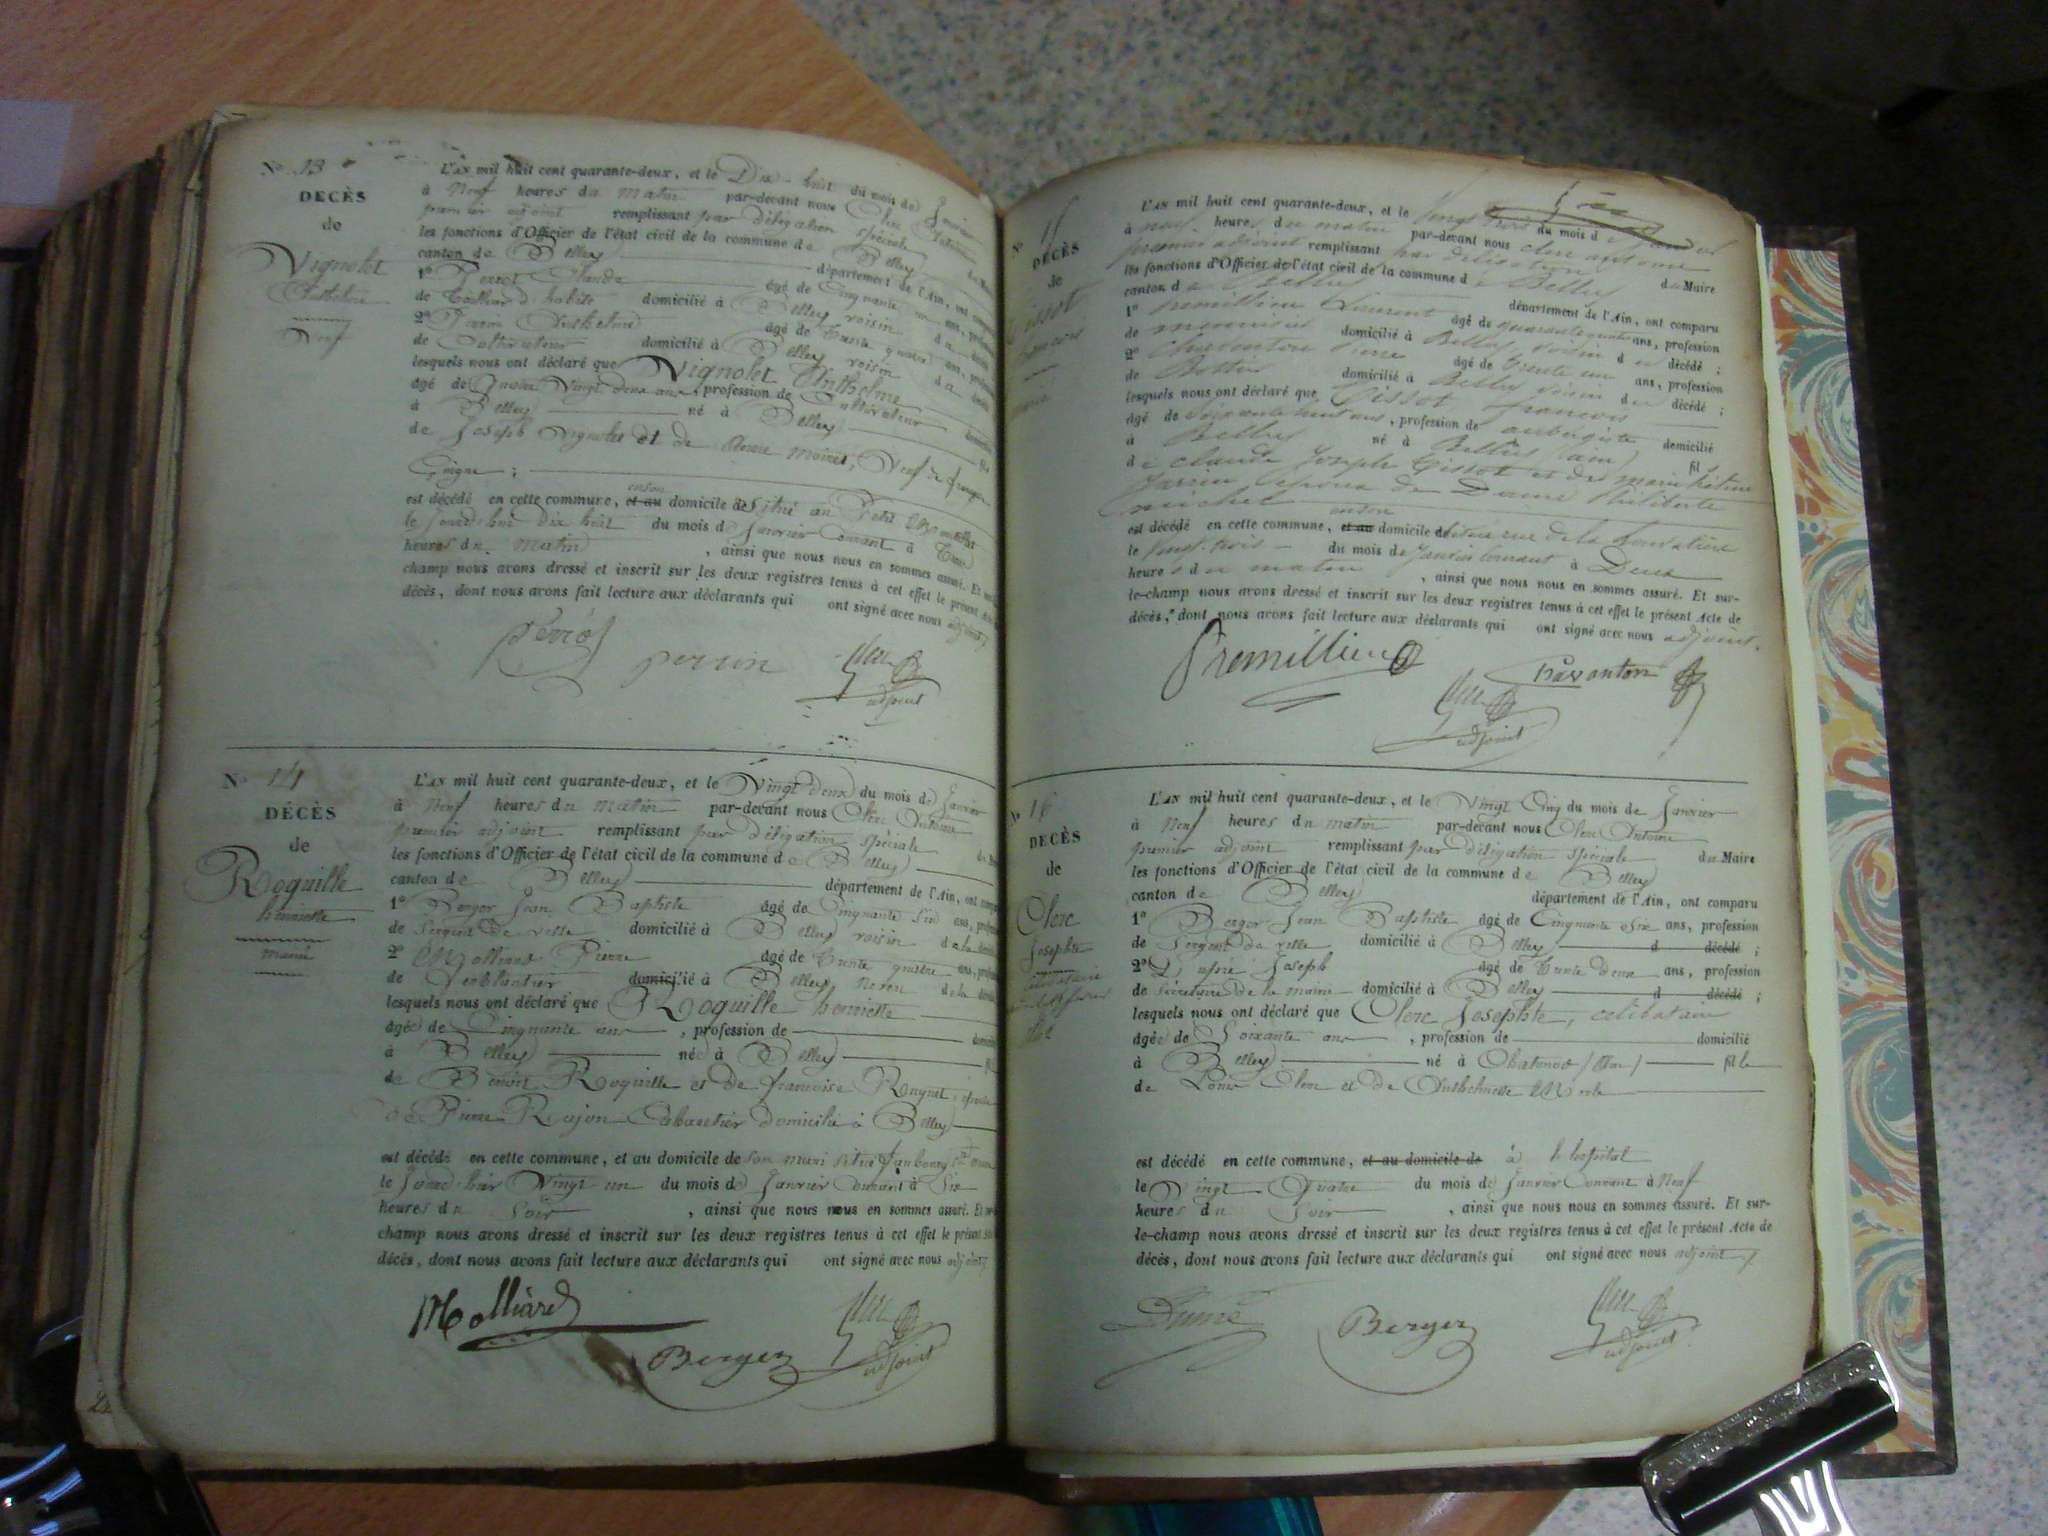 N° 13
DÉCÈS
de
Vignolet
Anthelme
Veuf
L'AN mil huit cent quarante-deux, et le Dix-huit du mois de Janvier
à Neuf heures du matin par-devant nous Clerc Antoine
premier adjoint remplissant par délégation spéciale
les fonctions d'Officier de l'état civil de la commune de Belley
canton de Belley département de l'Ain, ont comparu
1° Perrot Claude âgé de Cinquante ans, profession
de Tailleur d'habits domicilié à Belley voisin du décédé
2° Anthelme âgé de Trente quatre ans, profession
de Cultivateur domicilié à Belley voisin du décédé
lesquels nous ont déclaré que Vignolet Anthelme
âgé de Quatre Vingt deux ans, profession de Cultivateur domicilié
à Belley né à Belley fil
de Joseph Vignolet et de Anne Moinet, Veuf de
est décédé en cette commune, et au domicile de situé au Petit
le jourd'hui dix huit du mois de Janvier Courant à
heures du matin, ainsi que nous nous en sommes assuré. Et
champ nous avons dressé et inscrit sur les deux registres tenus à cet effet le présent Acte
décès, dont nous avons fait lecture aux déclarants qui ont signé avec nous adjoint
Perrot perrin Clerc
adjoint
N° 14
DÉCÈS
de
Roquille
henriette
mariée
L'AN mil huit cent quarante-deux, et le Vingt deux du mois de Janvier
à Neuf heures du matin par-devant nous Clerc Antoine
premier adjoint remplissant par délégation spéciale du
les fonctions d'Officier de l'état civil de la commune de Belley
canton de Belley département de l'Ain, ont comparu
1° Berger Jean Baptiste âgé de Cinquante Six ans, profession
de Sergent de ville domicilié à Belley voisin de la décédé
2° Molliard Pierre âgé de Trente quatre ans, profession
de Ferblantier domicilié à Belley neveu de la décédé
lesquels nous ont déclaré que Roquille henriette
âgée de Cinquante ans, profession de domicilié
à Belley née à Belley fil
de Benoit Roquille et de françoise Rugnet, épouse
de Pierre Rojon Cabaretier domicilié à Belley
est décédé en cette commune, et au domicile de son mari situé faubourg
le jourd'hier Vingt un du mois de Janvier Courant à Six
heures du Soir, ainsi que nous nous en sommes assuré. Et sur
champ nous avons dressé et inscrit sur les deux registres tenus à cet effet le présent
décès, dont nous avons fait lecture aux déclarants qui ont signé avec nous adjoint
Molliard Berger Clerc
adjoint
N° 15
DÉCÈS
de
Tissot
françois
L'AN mil huit cent quarante-deux, et le Vingt trois du mois de
à neuf heures du matin par-devant nous clerc antoine
premier adjoint remplissant par délégation du Maire
les fonctions d'Officier de l'état civil de la commune de Belley
canton de Belley département de l'Ain, ont comparu
1° Premillieu Laurent âgé de quarante quatre ans, profession
de menuisier domicilié à Belley, voisin du décédé ;
2° Charvanton Pierre âgé de trente un ans, profession
de Bottier domicilié à Belley voisin du décédé ;
lesquels nous ont déclaré que Tissot françois
âgé de soixante neuf ans, profession de aubergiste domicilié
à Belley né à Belley (ain) fil
de claude Joseph Tissot et de marie
époux de Dame Philiberte
michel
est décédé en cette commune, et au domicile de situé rue de la
le vingt-trois du mois de Janvier courant à Deux
heures du matin, ainsi que nous nous en sommes assuré. Et sur-
le-champ nous avons dressé et inscrit sur les deux registres tenus à cet effet le présent Acte de
décès, dont nous avons fait lecture aux déclarants qui ont signé avec nous adjoint.
Premillieu Charvanton
Clerc
adjoint
N° 16
DÉCÈS
de
Clerc
Josephte
Célibataire
L'AN mil huit cent quarante-deux, et le Vingt Cinq du mois de Janvier
à Neuf heures du matin par-devant nous Clerc Antoine
premier adjoint remplissant par délégation spéciale du Maire
les fonctions d'Officier de l'état civil de la commune de Belley
canton de Belley département de l'Ain, ont comparu
1° Berger Jean Baptiste âgé de Cinquante Six ans, profession
de Sergent de ville domicilié à Belley d décédé ;
2° Joseph âgé de Trente deux ans, profession
de Secrétaire de la mairie domicilié à Belley d décédé ;
lesquels nous ont déclaré que Clerc Josephte, celibataire
âgée de Soixante ans, profession de domicilié
à Belley né à Chatonod (Ain) fille
de Louis Clerc et de Anthelmette
est décédé en cette commune, et au domicile de à l'hospital
le Vingt Quatre du mois de Janvier Courant à Neuf
heures du Soir, ainsi que nous nous en sommes assuré. Et sur-
le-champ nous avons dressé et inscrit sur les deux registres tenus à cet effet le présent Acte de
décès, dont nous avons fait lecture aux déclarants qui ont signé avec nous adjoint
Berger Clerc
adjoint